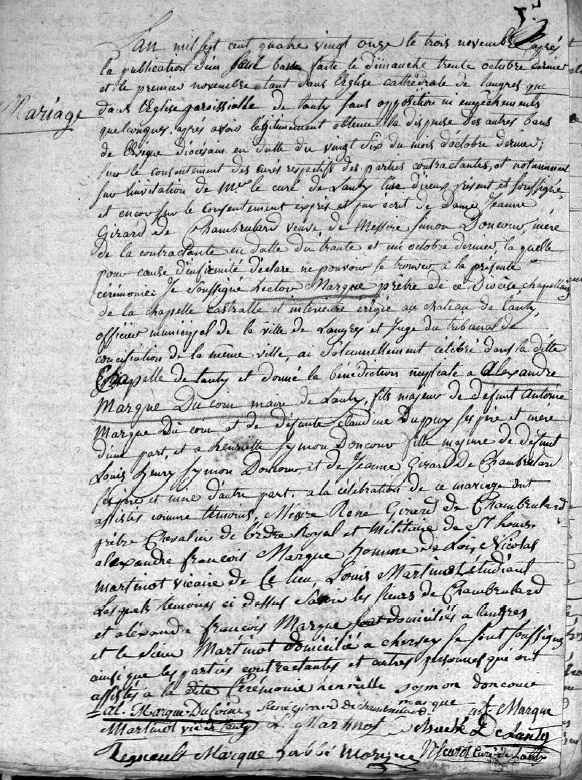 L'an mil sept cent quatre vingt onze le trois novembre après
la publication d'un seul ban faite le dimanche trente octobre dernier
et le premier novembre tant dans l'Eglise cathédrale de langres que
dans l'Eglise paroissialle de Lanty sans opposition ni empechements
Mariage
quelconques, après avoir légitimement obtenu la dispense des autres bans
de l'évêque diocésain en datte du vingt six du mois d'octobre dernier;
sur le consentement des curés respectifs des parties contractantes, et notamment
sur l'invitation de Mr le curé de Lanty present et soussigné
et encor sur le consentement exprès et par ecrit de dame Jeanne
Girard de Chambrulard veuve de Messire Simon Doncour, mère
de la contractante en datte du trente et un octobre dernier, laquelle
pour cause d'infirmité déclare ne pouvoir se trouver à la présente
cérémonie, Je soussigné Hector Marque pretre de ce Diocèse chapellain
de la chapelle castralle et interieure erigée au chateau de Lanty,
officier municipal de la ville de Langres et juge du tribunal de
conciliation de la même ville, ai solennellement célébré dans la dite
Chapelle de Lanty et donné la bénédiction nuptiale à alexandre
Marque Du coin maire de Lanty, fils majeur de defunt antoine
Marque Du coin et de défunte claudine Dupuy ses père et mere
d'une part, et a henriette Symon Doncour fille majeure de defunt
Louis henry Symon Doncour et de Jeanne Girard de Chambrulard
ses père et mere d'autre part, a la célébration de ce mariage ont
assistés comme temoins, Messire René Girard de Chambrulard
prêtre Chevalier de l'ordre Royal et Militaire de St Louis,
alexandre françois Marque homme de Loix, Nicolas
martinot vicaire de ce lieu, Louis Martinot étudiant
Lesquels temoins ci dessus savoir les sieurs de Chambrulard
et alexandre françois Marque domiciliés a langres
et le sieur Martinot domicilié à choisey se sont soussignés
ainsi que les parties contractantes et autres personnes qui ont
assistés à la dite Cérémonie henriette symon doncour
al. Marque Ducoin rené girard de chambrulard marque Marque
Martinot vic. de Lanty L. Martinot De Lanty
Regnault Marque l'abbé Marque curé de Lanty